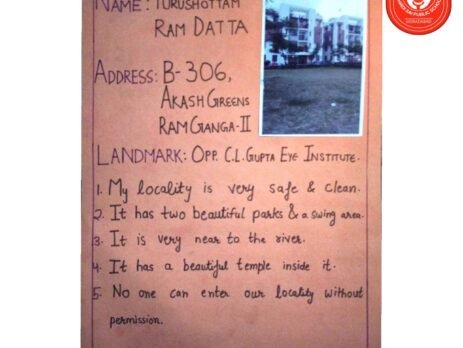 NAME: PURUSHOTTAM
RAM DATTA
ADDRESS: B-306,
AKASH GREENS
RAM GANGA-II
LANDMARK: OPP. C.L. GUPTA EYE INSTITUTE.
1. My locality is very safe & clean.
2. It has two beautiful parks & a swing area.
3. It is very near to the river.
4. It has a beautiful temple inside it.
5. No one can enter our locality without
permission.